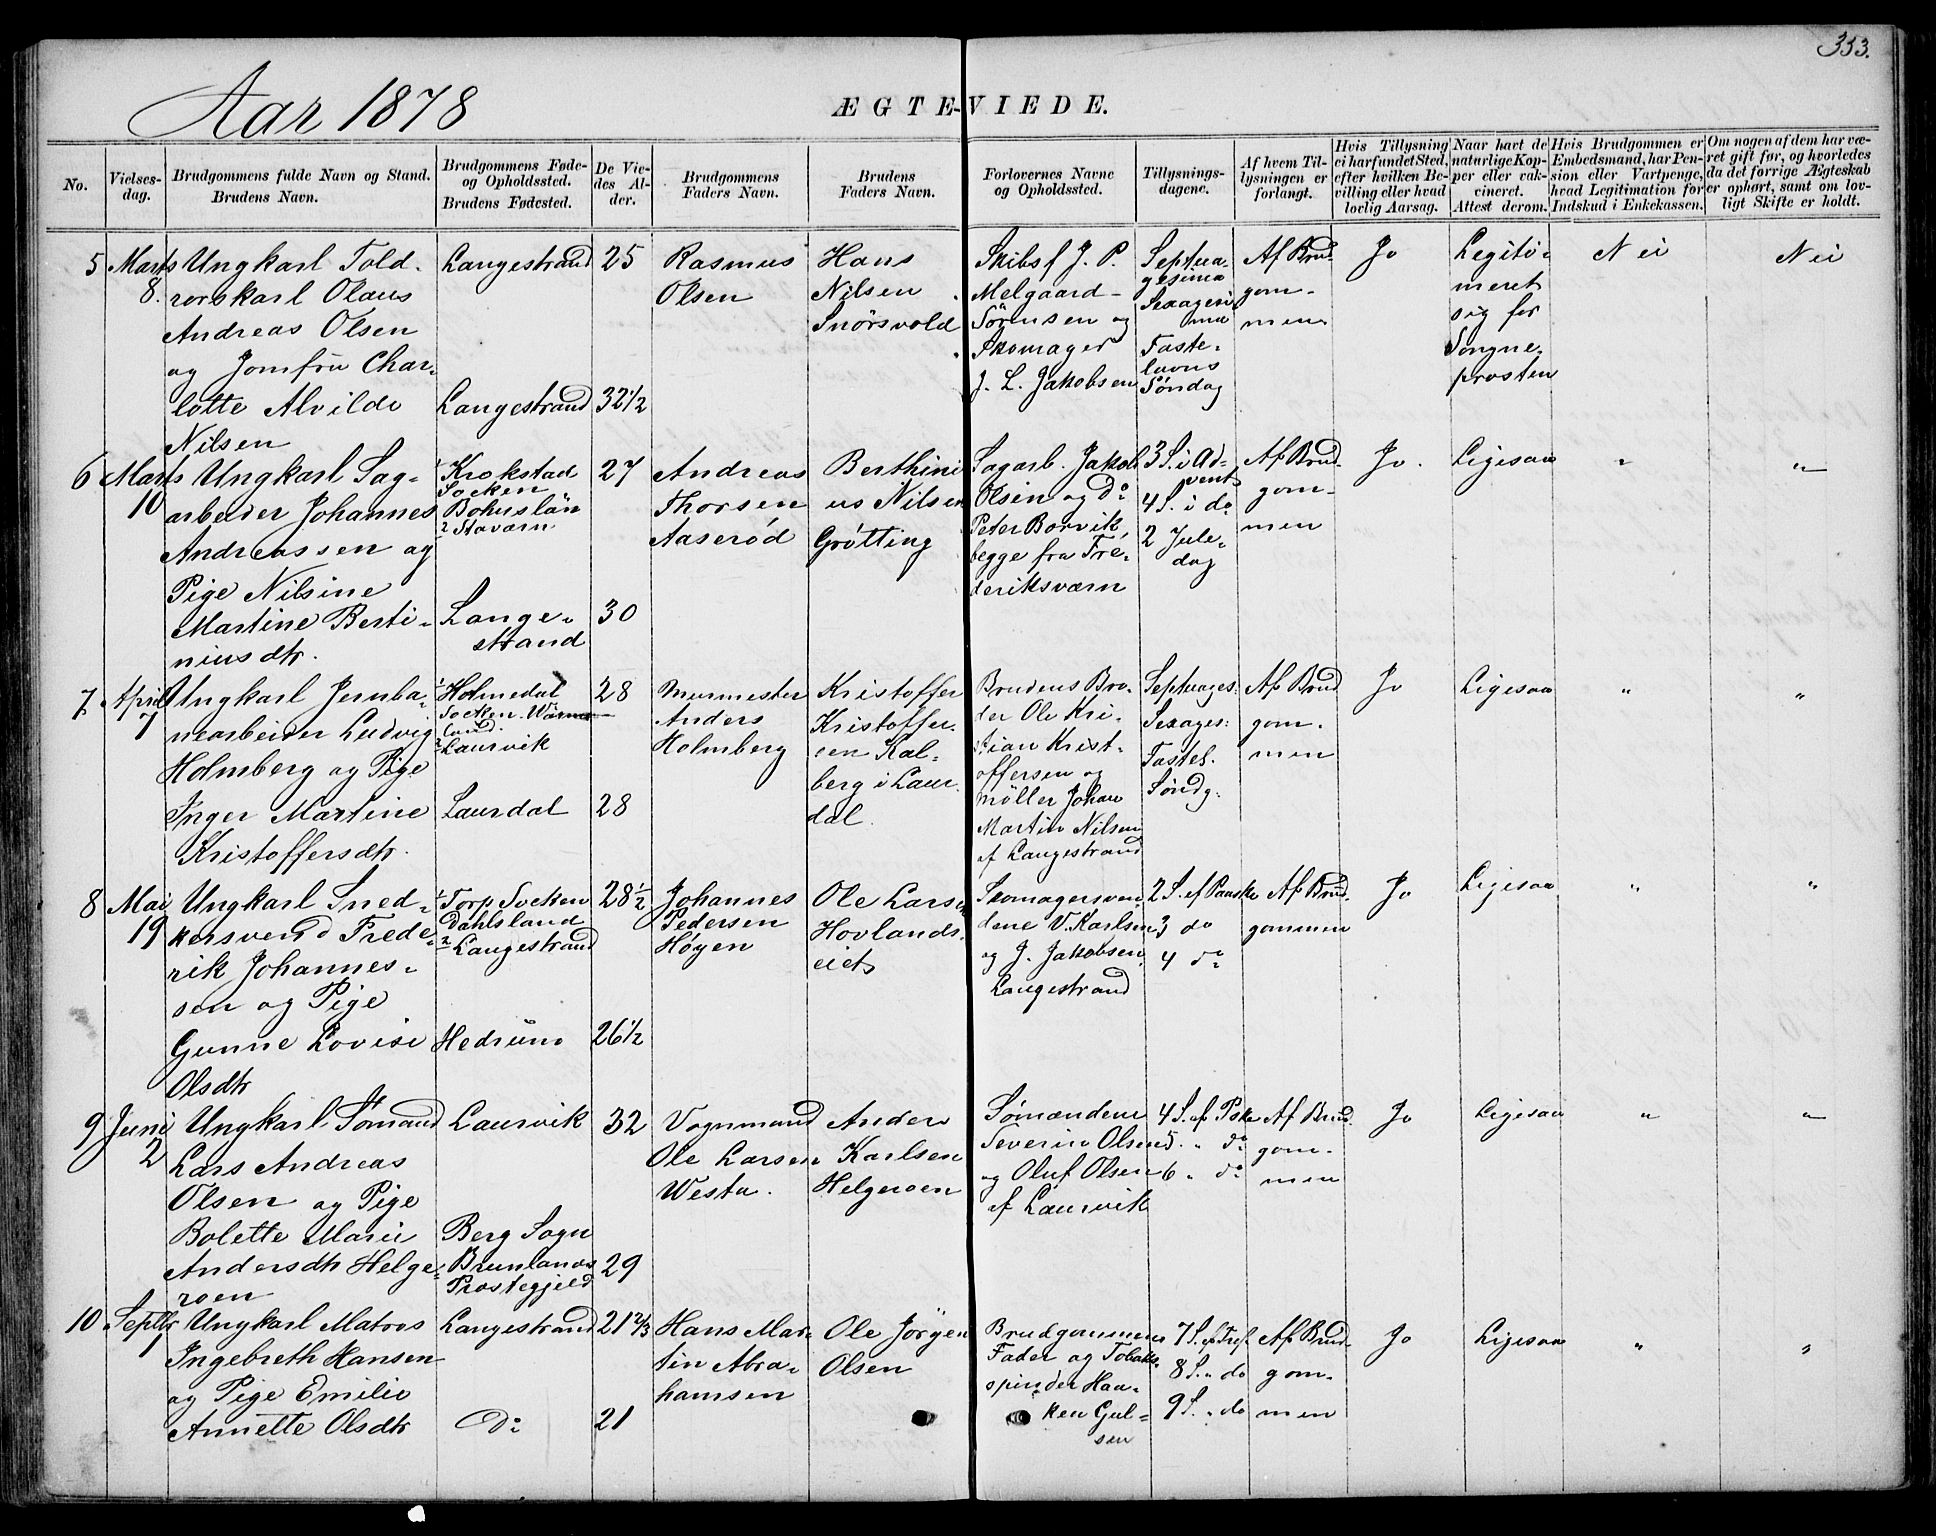 353.
Aar 1878
ÆGTEVIEDE.
No.
Vielses-
dag.
Brudgommens fulde Navn og Stand.
Brudens Navn.
Brudgommens Føde-
og Opholdssted.
Brudens Fødested.
De Vie-
des Al-
der.
Brudgommens
Faders Navn.
Brudens
Faders Navn.
Forlovernes Navne
og Opholdssted.
Tillysnings-
dagene.
Af hvem Til-
lysningen er
forlangt.
Hvis Tillysning
ei har fundet Sted,
efter hvilken Be-
villing eller hvad
lovlig Aarsag.
Naar havt de
naturlige Kop-
per eller vak-
cineret.
Attest derom.
Hvis Brudgommen er
Embedsmand, har Pen-
sion eller Vartpenge,
hvad Legitimation for
Indskud i Enkekassen.
Om nogen af dem har væ-
ret gift før, og hvorledes
da det forrige Ægteskab
er ophørt, samt om lov-
ligt Skifte er holdt.
5
Marts
8.
Ungkarl Told-
rorskarl Olaus
Andreas Olsen
og Jomfru Char-
lotte Alvilde
Nilsen
Langestrand
Langestrand
25
32 1/2
Rasmus
Olsen
Hans
Nilsen
Snörsvold
Skibsf J. P.
Melgaard-
Sörensen og
Skomager
J. L. Jakobsen
Septua-
gesima
Sexagesi
ma
Faste-
lavns
Søndag
Af Brud
gom-
men
Jo
Legiti-
meret
sig for
Sogne-
presten
Nei
Nei
6
Marts
10
Ungkarl Sag-
arbeider Johannes
Andreassen og
Pige Nilsine
Martine Berti-
niusdtr.
1 Krokstad
Socken
Bohuslän
2 Stavärn
Lange-
strand
27
30
Andreas
Thorsen
Aaseröd
Berthini
us Nilsen
Grötting
Sagarb. Jakob
Olsen og Do
Peter Borvik,
begge fra Fre-
deriksværn
3 S. i Ad-
vent
4 S. i do
2 Jule-
dag
Af Brud-
gom-
men
Jo.
Ligesaa
"
"
7
April
7
Ungkarl Jernba-
nearbeider Ludvig
Holmberg og Pige
Inger Martine
Kristoffersdtr.
1 Holmedal
Socken. Wärm
land.
2 Laurvik
Laurdal
28
28
Murmester
Anders
Holmberg
Kristoffer
Kristoffer-
sen Kal-
berg i Laur-
dal.
Brudens Bro-
der Ole Kri-
stian Krist-
offersen og
Möller Johan
Martin Nilsen
af Langestrand
Septuages:
Sexages:
Fastel.
Söndg:
Af Brud
gom-
men
Jo
Ligesaa
"
"
8
Mai
19
Ungkarl Sned-
kersvend Frede-
rik Johannes-
sen og Pige
Gunne Lovise
Olsdtr
1 Torp Socken
Dahlsland
2 Langestrand
Hedrum
28 1/2
26 1/2
Johannes
Pedersen
Höyen
Ole Larsen
Hovlands-
eiet
Skomagersven-
dene V. Karlsen
og J. Jakobsen,
Langestrand
2 S. ef Paaske
3 do
4 do
Af Brud-
gommen
Jo
Ligesaa
"
"
9
Juni
2
Ungkarl Sömand
Lars Andreas
Olsen og Pige
Bolette Marie
Andersdtr Helge-
roen
Laurvik
Berg Sogn
Brunlanæs
Prestegjeld
32
29
Vognmand
Ole Larsen
Westu.
Anders
Karlsen
Helgeroen
Sömændene
Severin Olsen
og Oluf Olsen
af Laurvik
4 S. ef Paske
5. " do
6 " do
Af Brud
gom-
men
Jo
Ligesaa
"
"
10
Septbr
1
Ungkarl Matros
Ingebreth Hansen
og Pige Emilie
Annette Olsdtr
Langestrand
Do
21 2/3
21
Hans Mar-
tin Abra-
hamsen
Ole Jörgen
Olsen
Brudgommens
Fader og Tobaks-
spinder Haa-
ken Gul-
sen
7 S. ef Tref
8 S. " do
9 S. " do
Af Brud-
gom-
men
Jo
Ligesaa
"
"